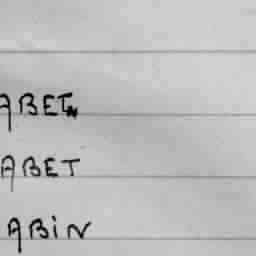 ABET
ABET
ABIN